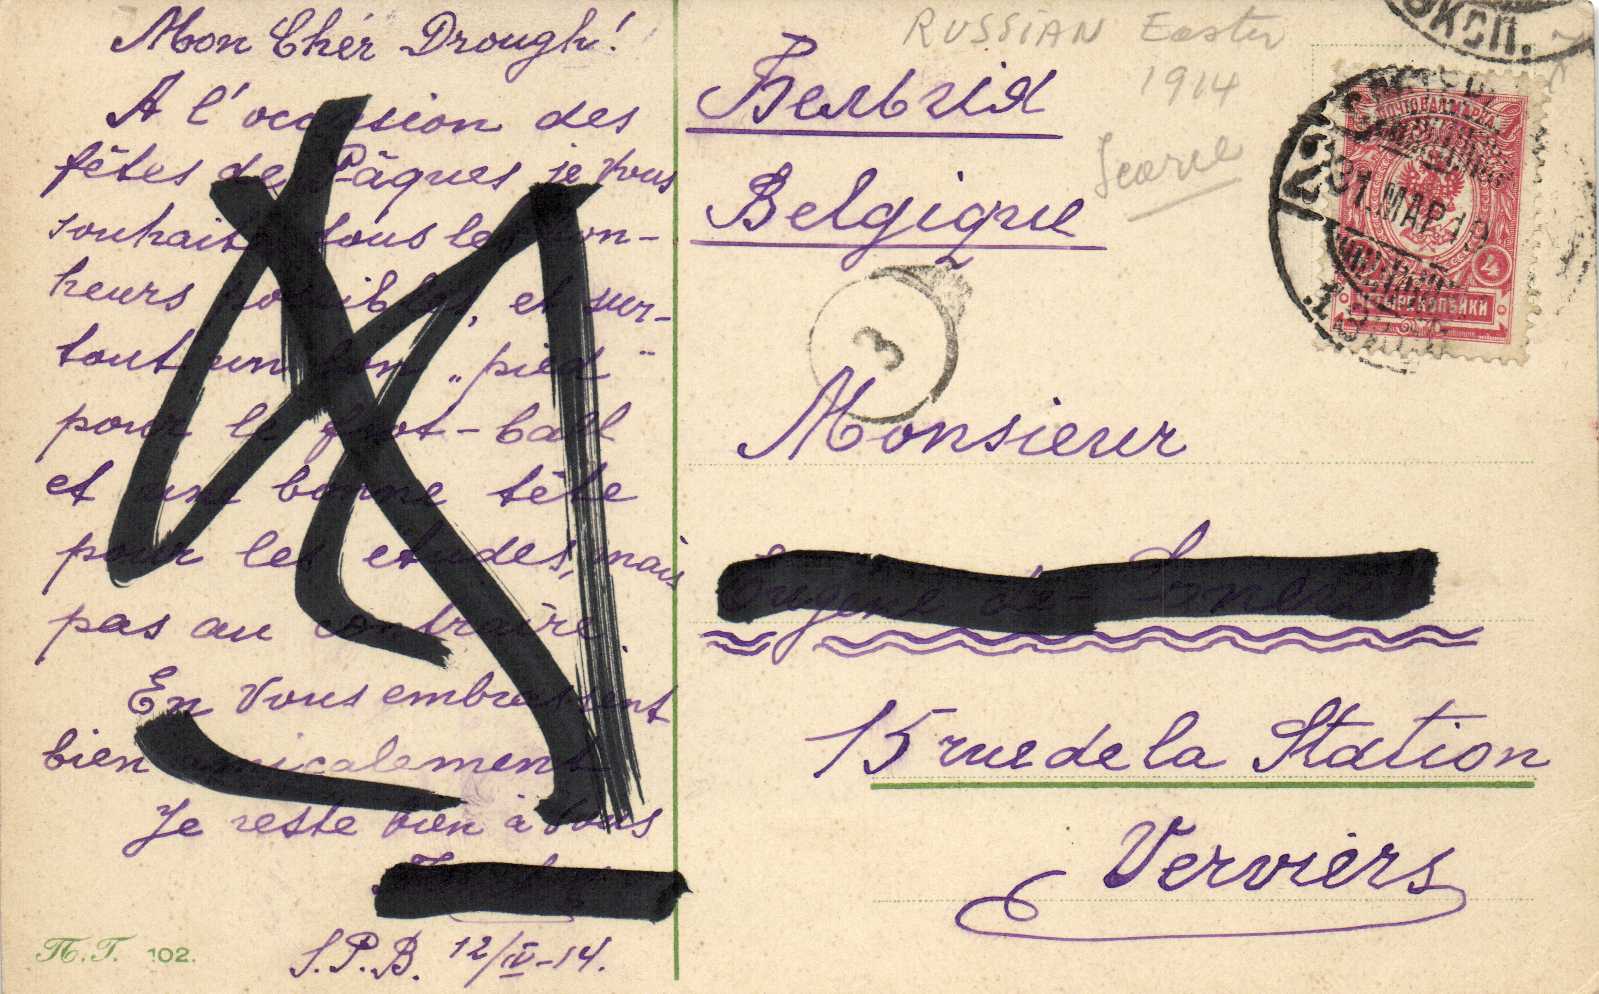 Mon Chér Drough!
A l'occasion des
fêtes de Pâques je Vous
souhaite tous les bon-
heurs possibles, et sur-
tout un bon „pied"
pour le foot-ball
et une bonne tête
pour les etudes, mais
pas au contraire
En Vous embrassent
bien amicalement
Je reste bien à Vous
S.P.B. 12/IV-14.
П.Г. 102.
RUSSIAN Easter
1914
Scarce
Бельгія
Belgique
3
Monsieur
Eugène de
15 rue de la Station
Verviers
ЭКСП.
31.МАР.19
ПОЧТОВАЯ МАРКА
4
ЧЕТЫРЕ КОПѢЙКИ